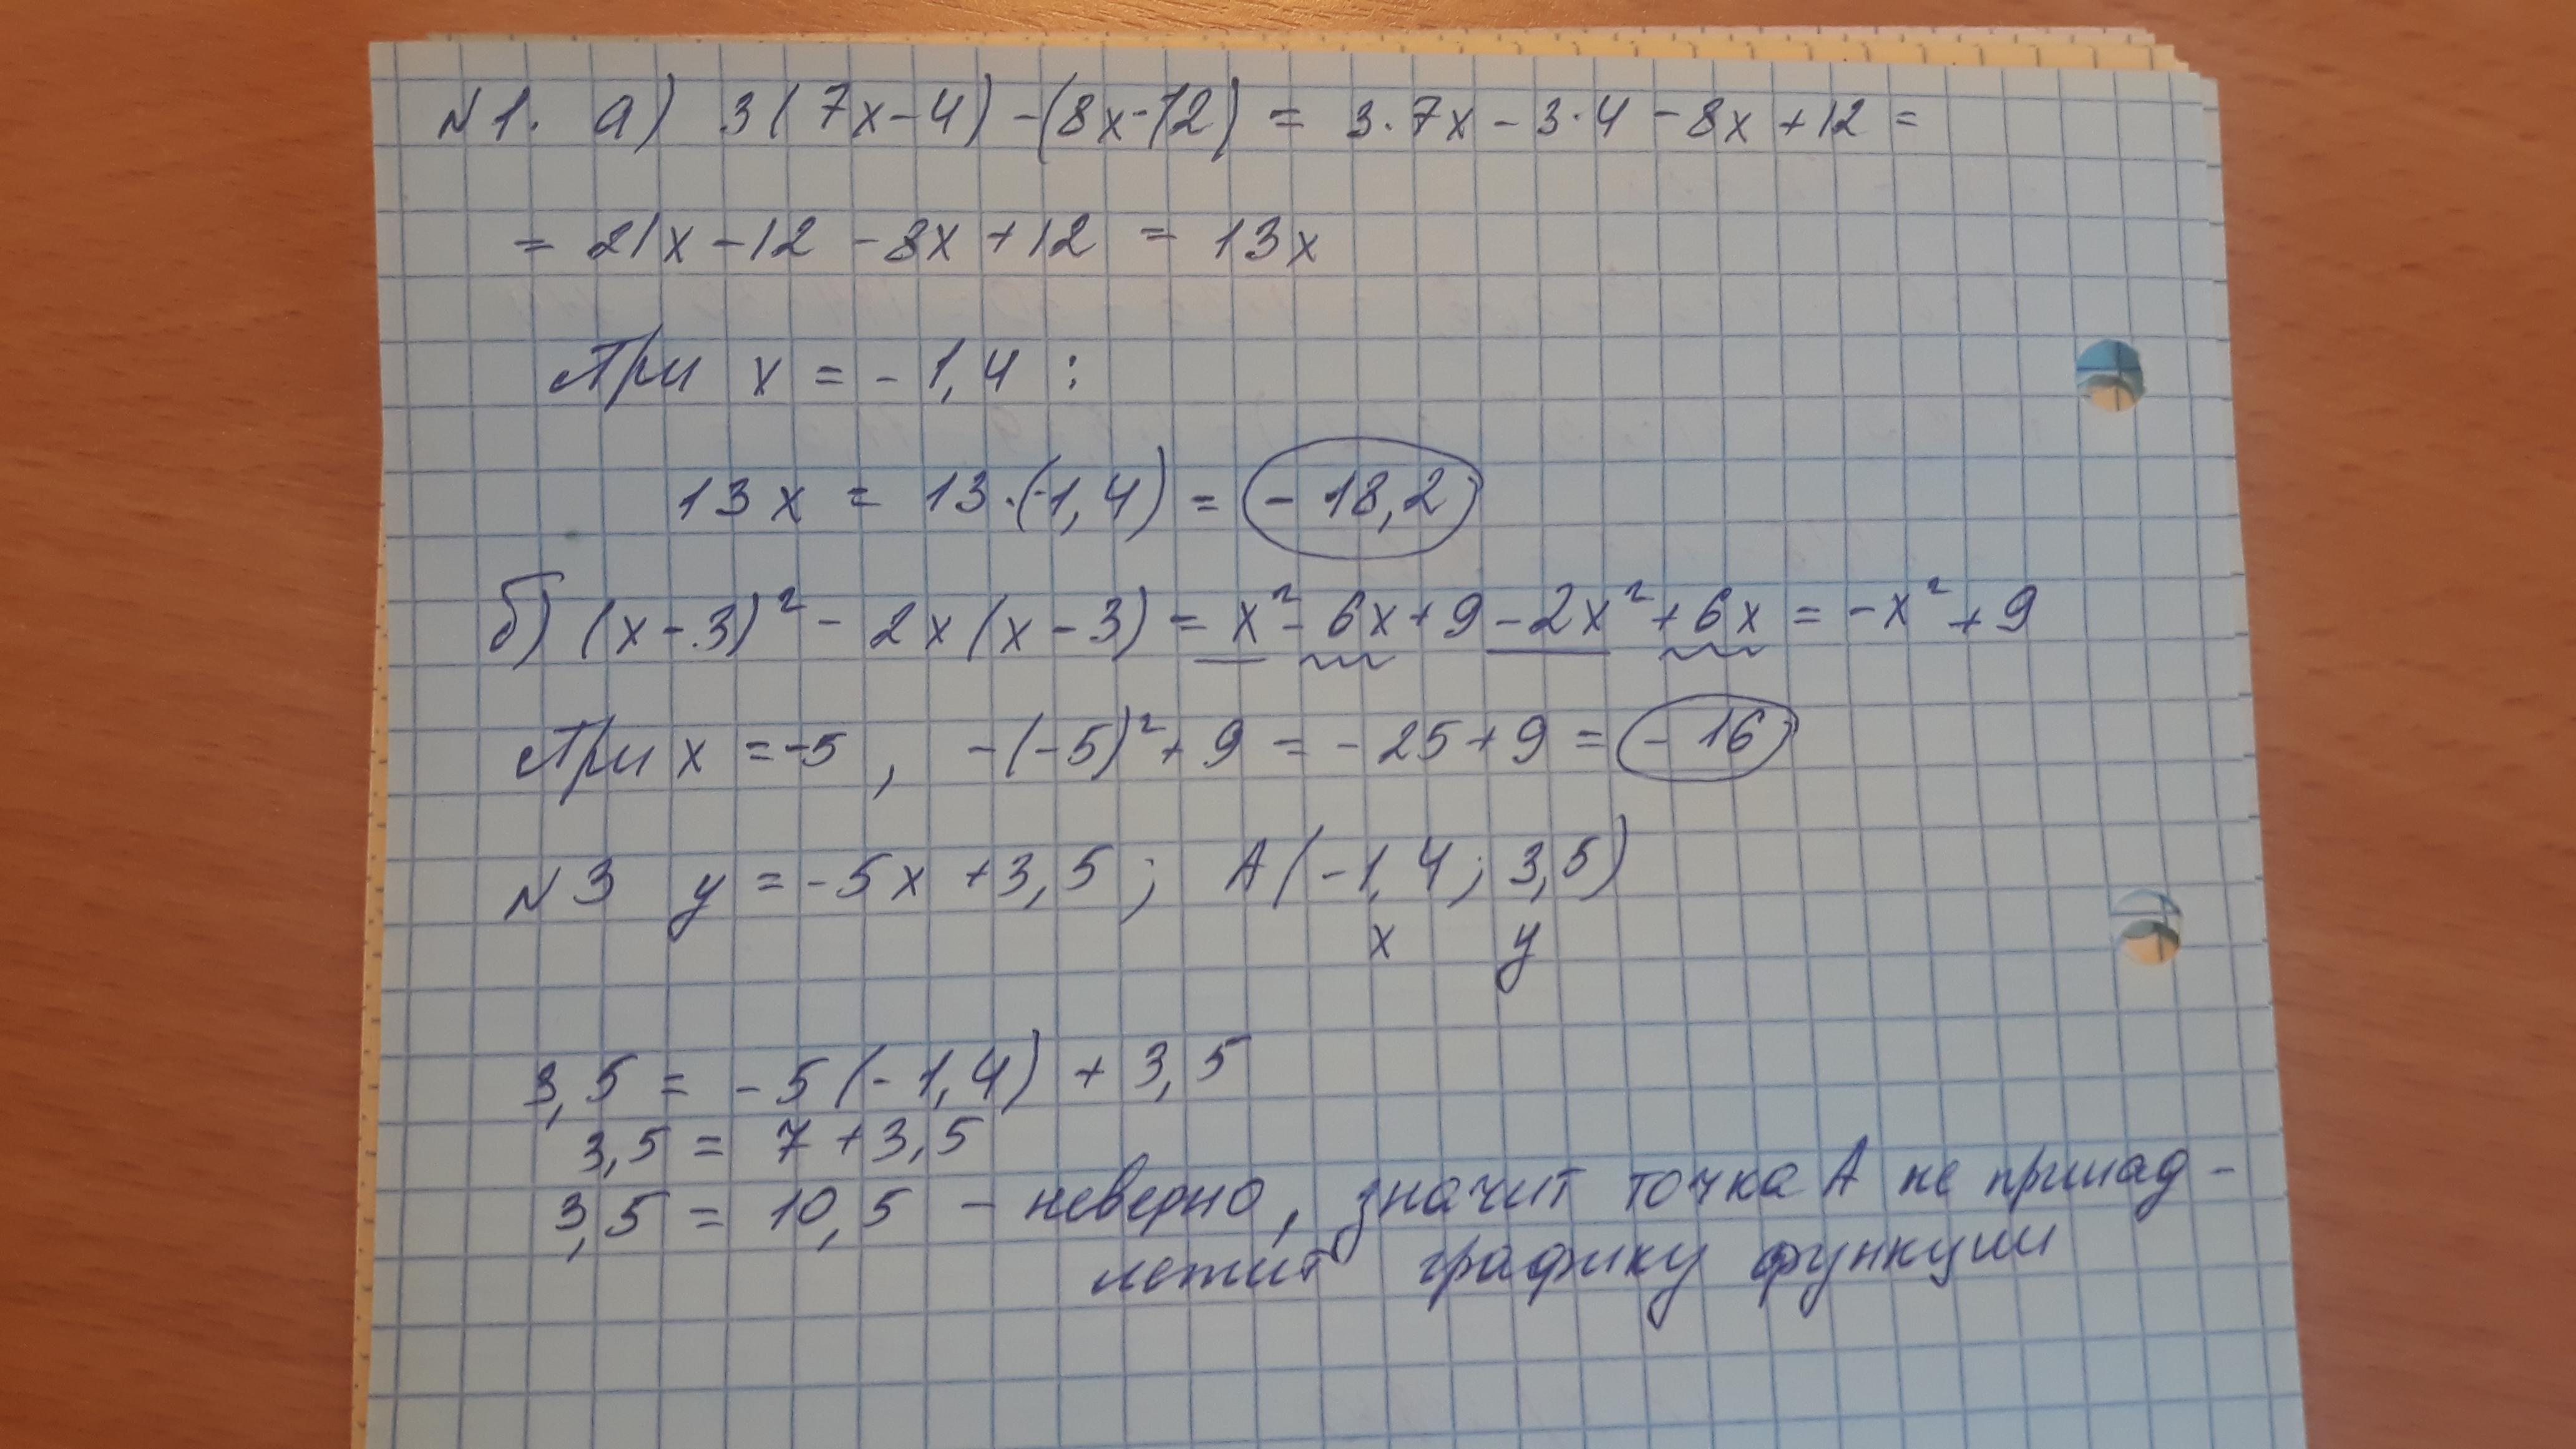 №1. а) 3(7x-4)-(8x-12) = 3·7x-3·4-8x+12=
= 21x-12-8x+12 = 13x
При x = -1,4 :
13x = 13·(-1,4) = -18,2
б) (x-3)² - 2x(x-3) = x²-6x+9-2x²+6x = -x²+9
При x = -5, -(-5)²+9 = -25+9 = -16
№3 y = -5x+3,5; A(-1,4; 3,5)
x y
3,5 = -5(-1,4) + 3,5
3,5 = 7+3,5
3,5 = 10,5 - неверно, значит точка А не принад-
лежит графику функции